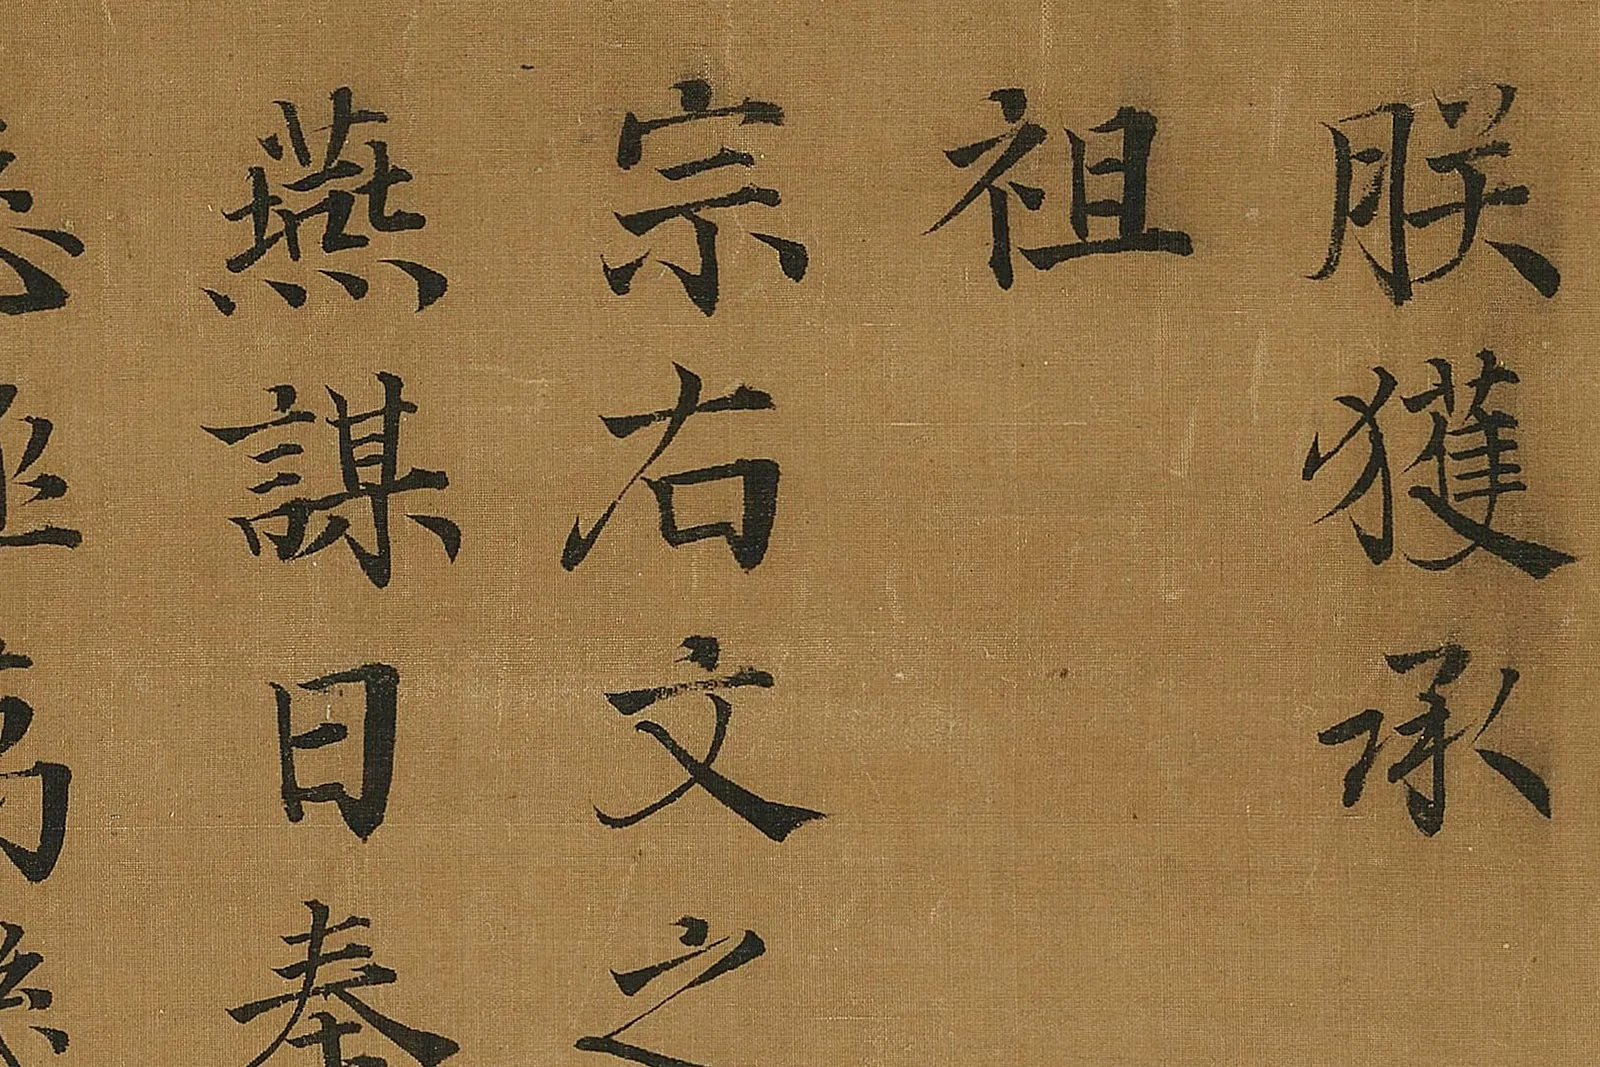 朕獲承
祖
宗右文之
燕謀日奉